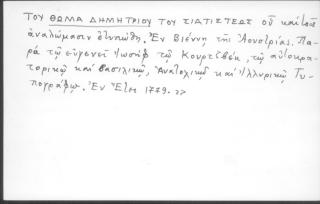 ΤΟΥ ΘΩΜΑ ΔΗΜΗΤΡΙΟΥ ΤΟΥ ΣΙΑΤΙΣΤΕΩΣ οὗ καὶ τοῖς
ἀναλώμασιν ἐτυπώθη. Ἐν Βιέννῃ τῆς Ἀουστρίας. Πα-
ρὰ τῷ εὐγενεῖ Ἰωσὴφ τῷ Κουρτζβὲκ, τῷ αὐτοκρα-
τορικῷ καὶ βασιλικῷ, Ἀνατολικῷ καὶ Ἰλλυρικῷ Τυ-
πογράφῳ. Ἐν Ἔτει 1779. >>